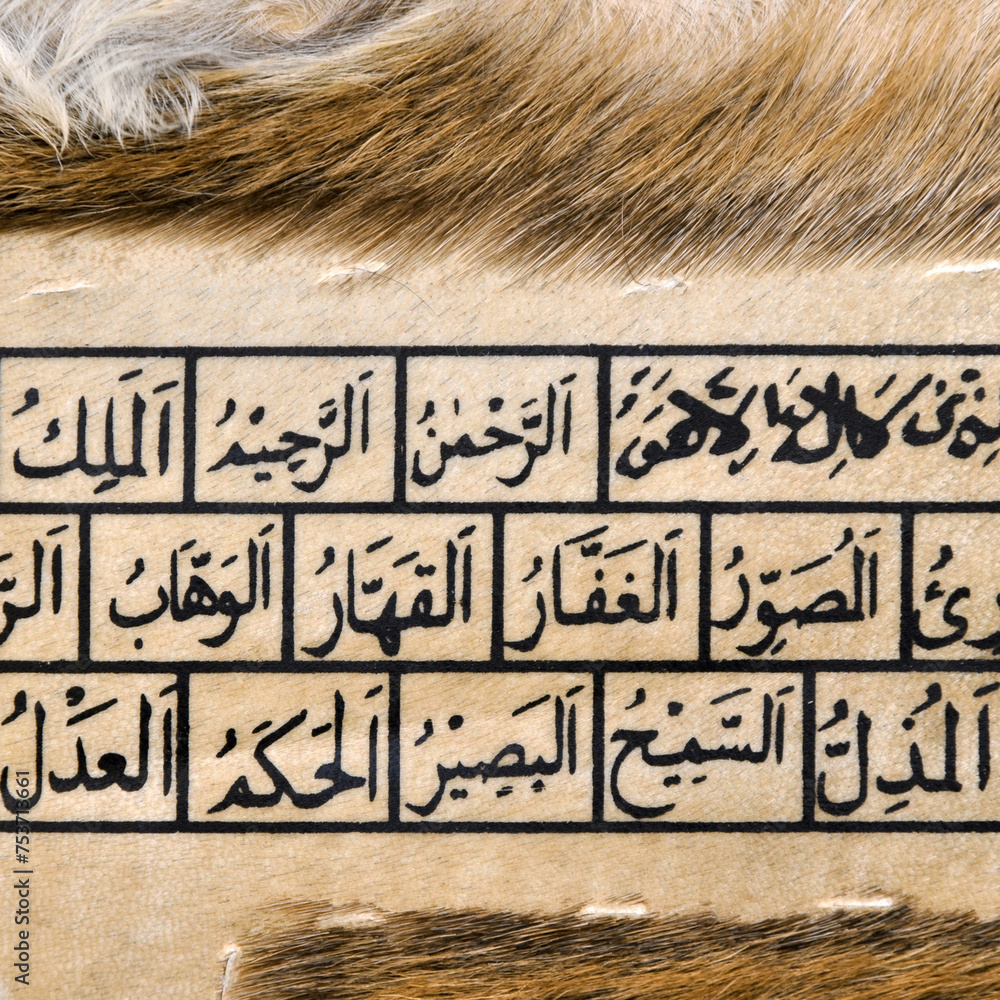 الرَّحْمٰنُ الرَّحِيْمُ اَلْمَلِكُ
اَلْمُصَوِّرُ اَلْغَفَّارُ اَلْقَهَّارُ اَلْوَهَّابُ
اَلْمُذِلُّ اَلسَّمِيْعُ اَلْبَصِيْرُ اَلْحَكَمُ اَلْعَدْلُ
Adobe Stock | #753713661